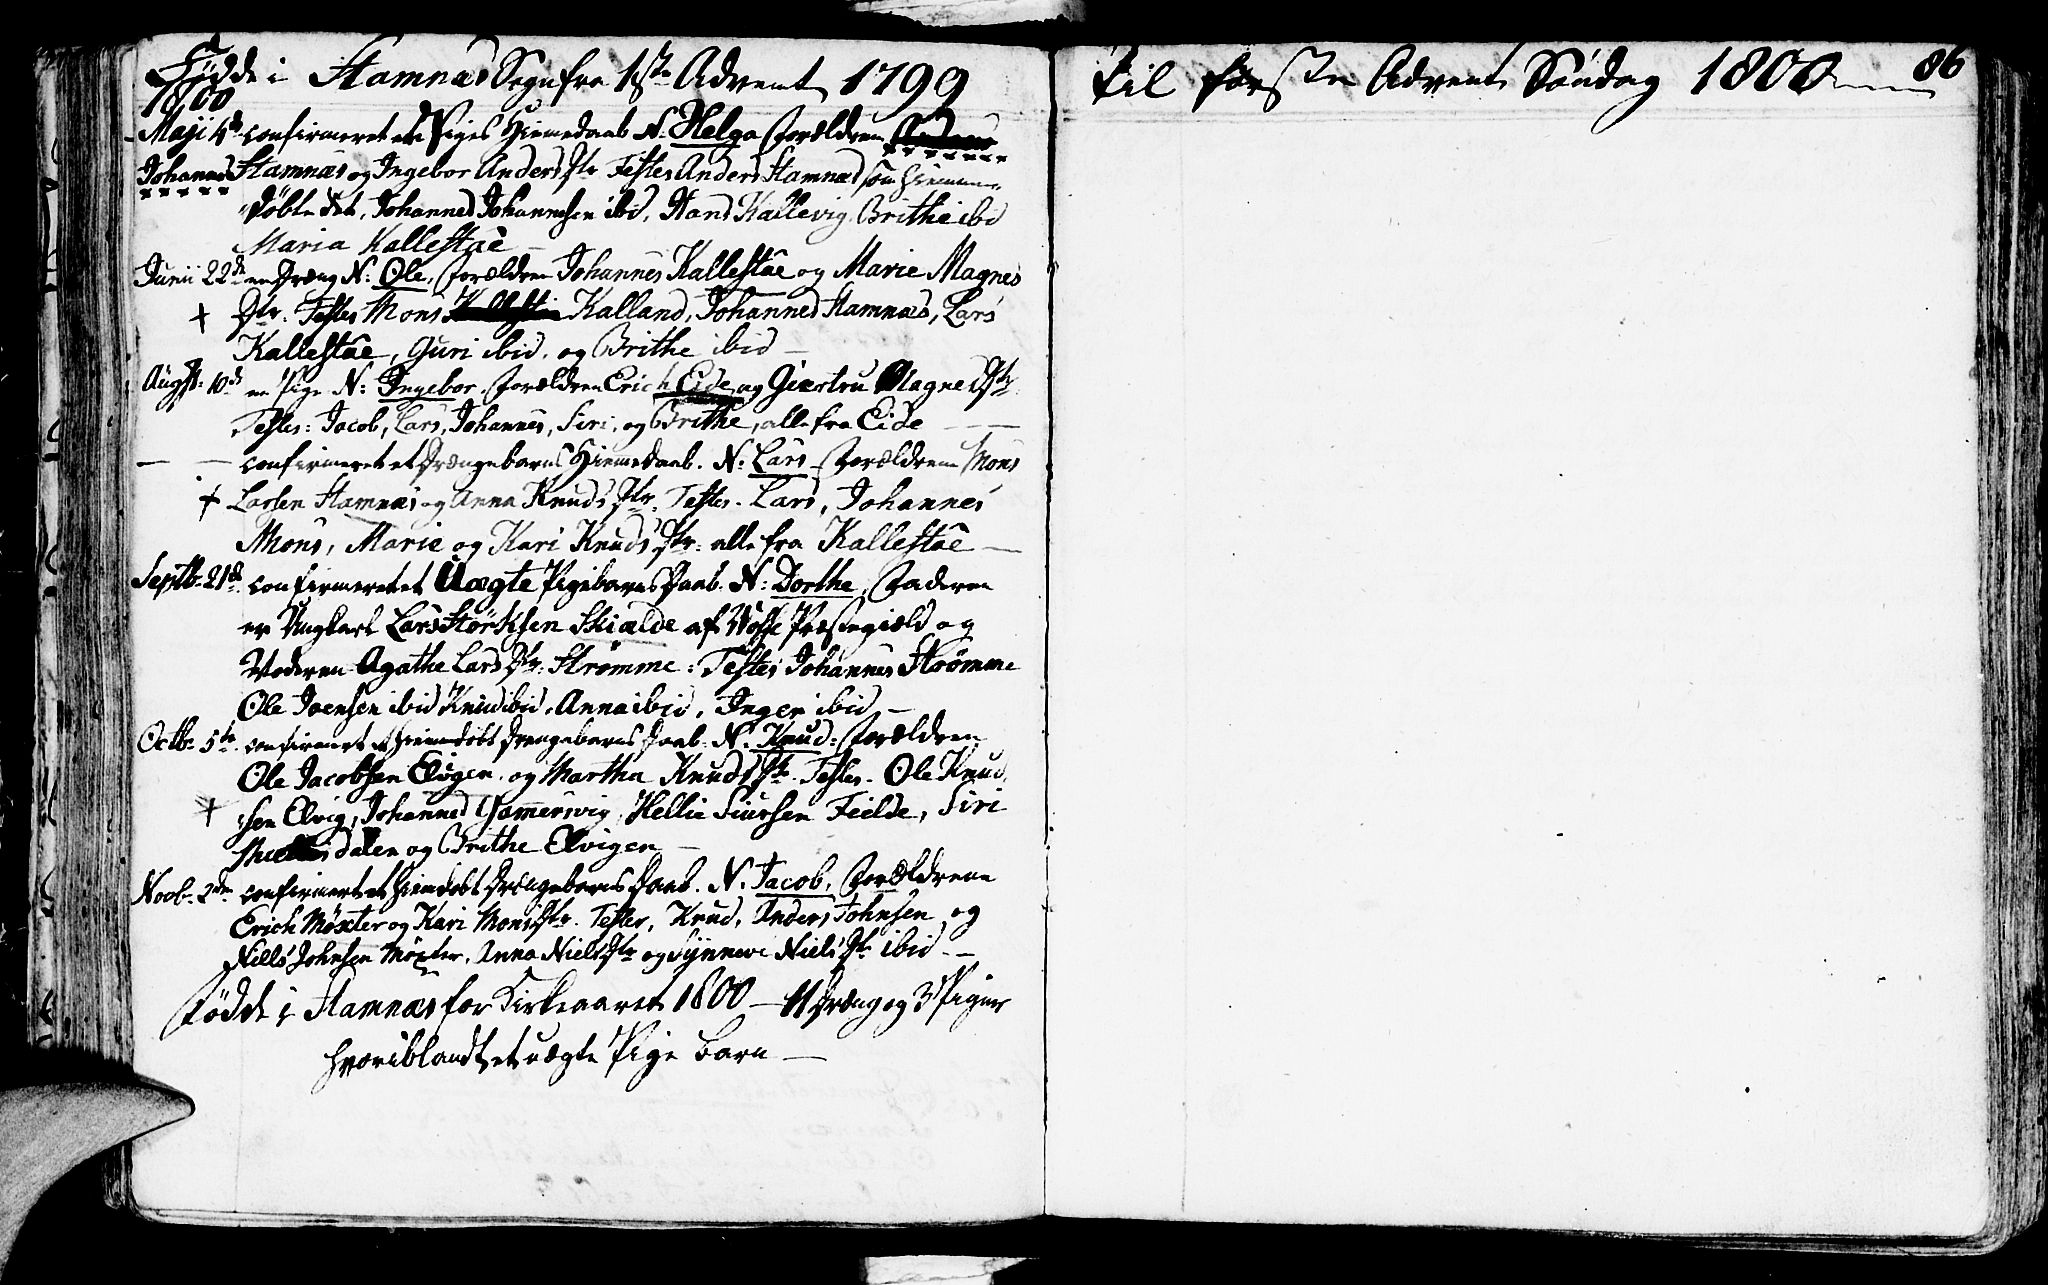 Fødde i Stamnæs Sogn fra 1ste Advent 1799
1800
Maji 4de confirmeret et Piges Hiemedaab N. Helga Forældrene
Johannes Stamnæs og Ingebor Anders Dtr Testes Anders Stamnæs som hiemme-
døbte det, Johannes Johannesen ibid, Hans Kallevig, Brithe ibid
Maria Kallestäe
Junii 22de en Dreng N: Ole, Forældren Johannes Kallestäe og Marie Magnes
Dtr. Testes Mons Kalland, Johannes Stamnæs, Lars
Kallestäe, Guri ibid, og Brithe ibid
Augst: 10de en Pige N: Ingebor Forældren Erich Eide og Giertru Magnes Dtr
Testes: Jacob, Lars, Johannes, Siri, og Brithe, alle fra Eide
confirmeret et Drængebarns Hiemedaab. N: Lars Forældrene Mons
Larsen Stamnæs og Anna Knuds Dtr. Testes. Lars, Johannes
Mons, Marie og Kari Knuds Dtr: alle fra Kallestäe
Septb. 21de confirmeret et Uægte Pigebarns Daab. N: Dorthe, Faderen
er Ungkarl Lars Störksen Skielde af Wosse Præstegield og
Moderen Agathe Lars Dtr: Strømme: Testes Johannes Strømme
Ole Joensen ibid Knud ibid, Anna ibid, Inger ibid
Octb. 5te confirmeret et hiemdøbt Drengebarns Daab: N. Knud: Forældren
Ole Jacobsen Elvigen og Martha Knuds Dtr. Testes. Ole Knud
sen Elvig, Johannes Gammersvig, Hellie Siursen Fielde, Siri
dalen og Brithe Elvigen
Novb. 2den confirmeret et hiemdøbt Drengebarns Daab. N. Jacob, Forældrene
Erich Møxter og Kari Mons Dtr. Testes, Knud, Anders Johnsen og
Niels Johnsen Møxter, Anna Niels Dtr og Synneve Niels Dtr ibid
Fødde i Stamnæs for Kirkeaaret 1800 — 4 Dreng og 3 Piger
hvoriblandt et uægte Pige barn
til første Advents Söndag 1800
86